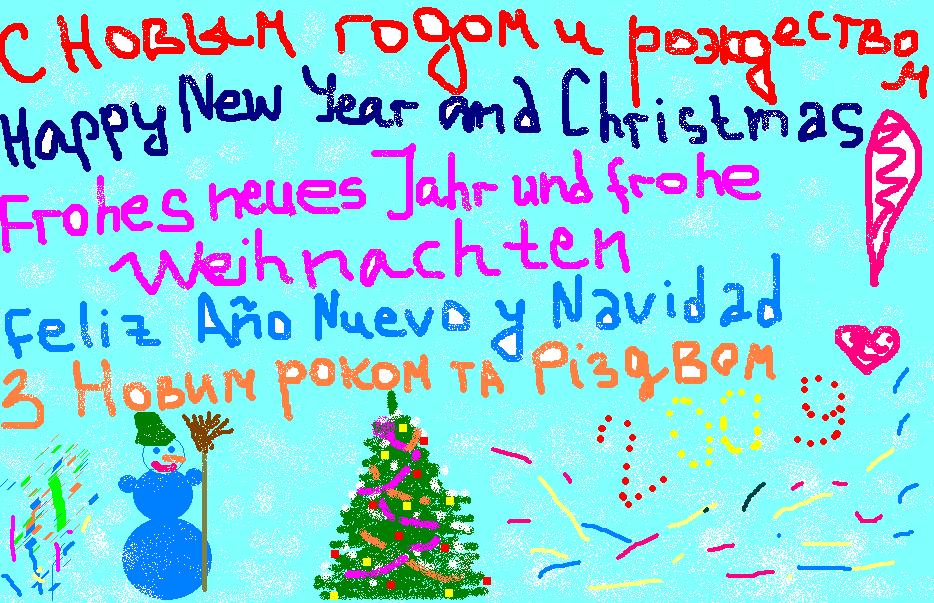 С Новым годом и рождеством
Happy New Year and Christmas
Frohes neues Jahr und frohe
Weihnachten
Feliz Año Nuevo y Navidad
З Новим роком та Різдвом
2009